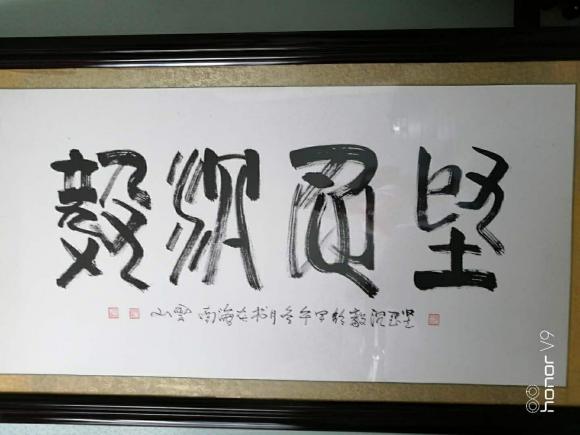 坚忍沉毅
坚忍沉毅 甲午冬月书 海南
honor V9